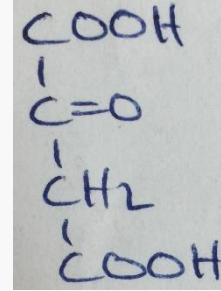 COOH
|
C=O
|
CH2
|
COOH